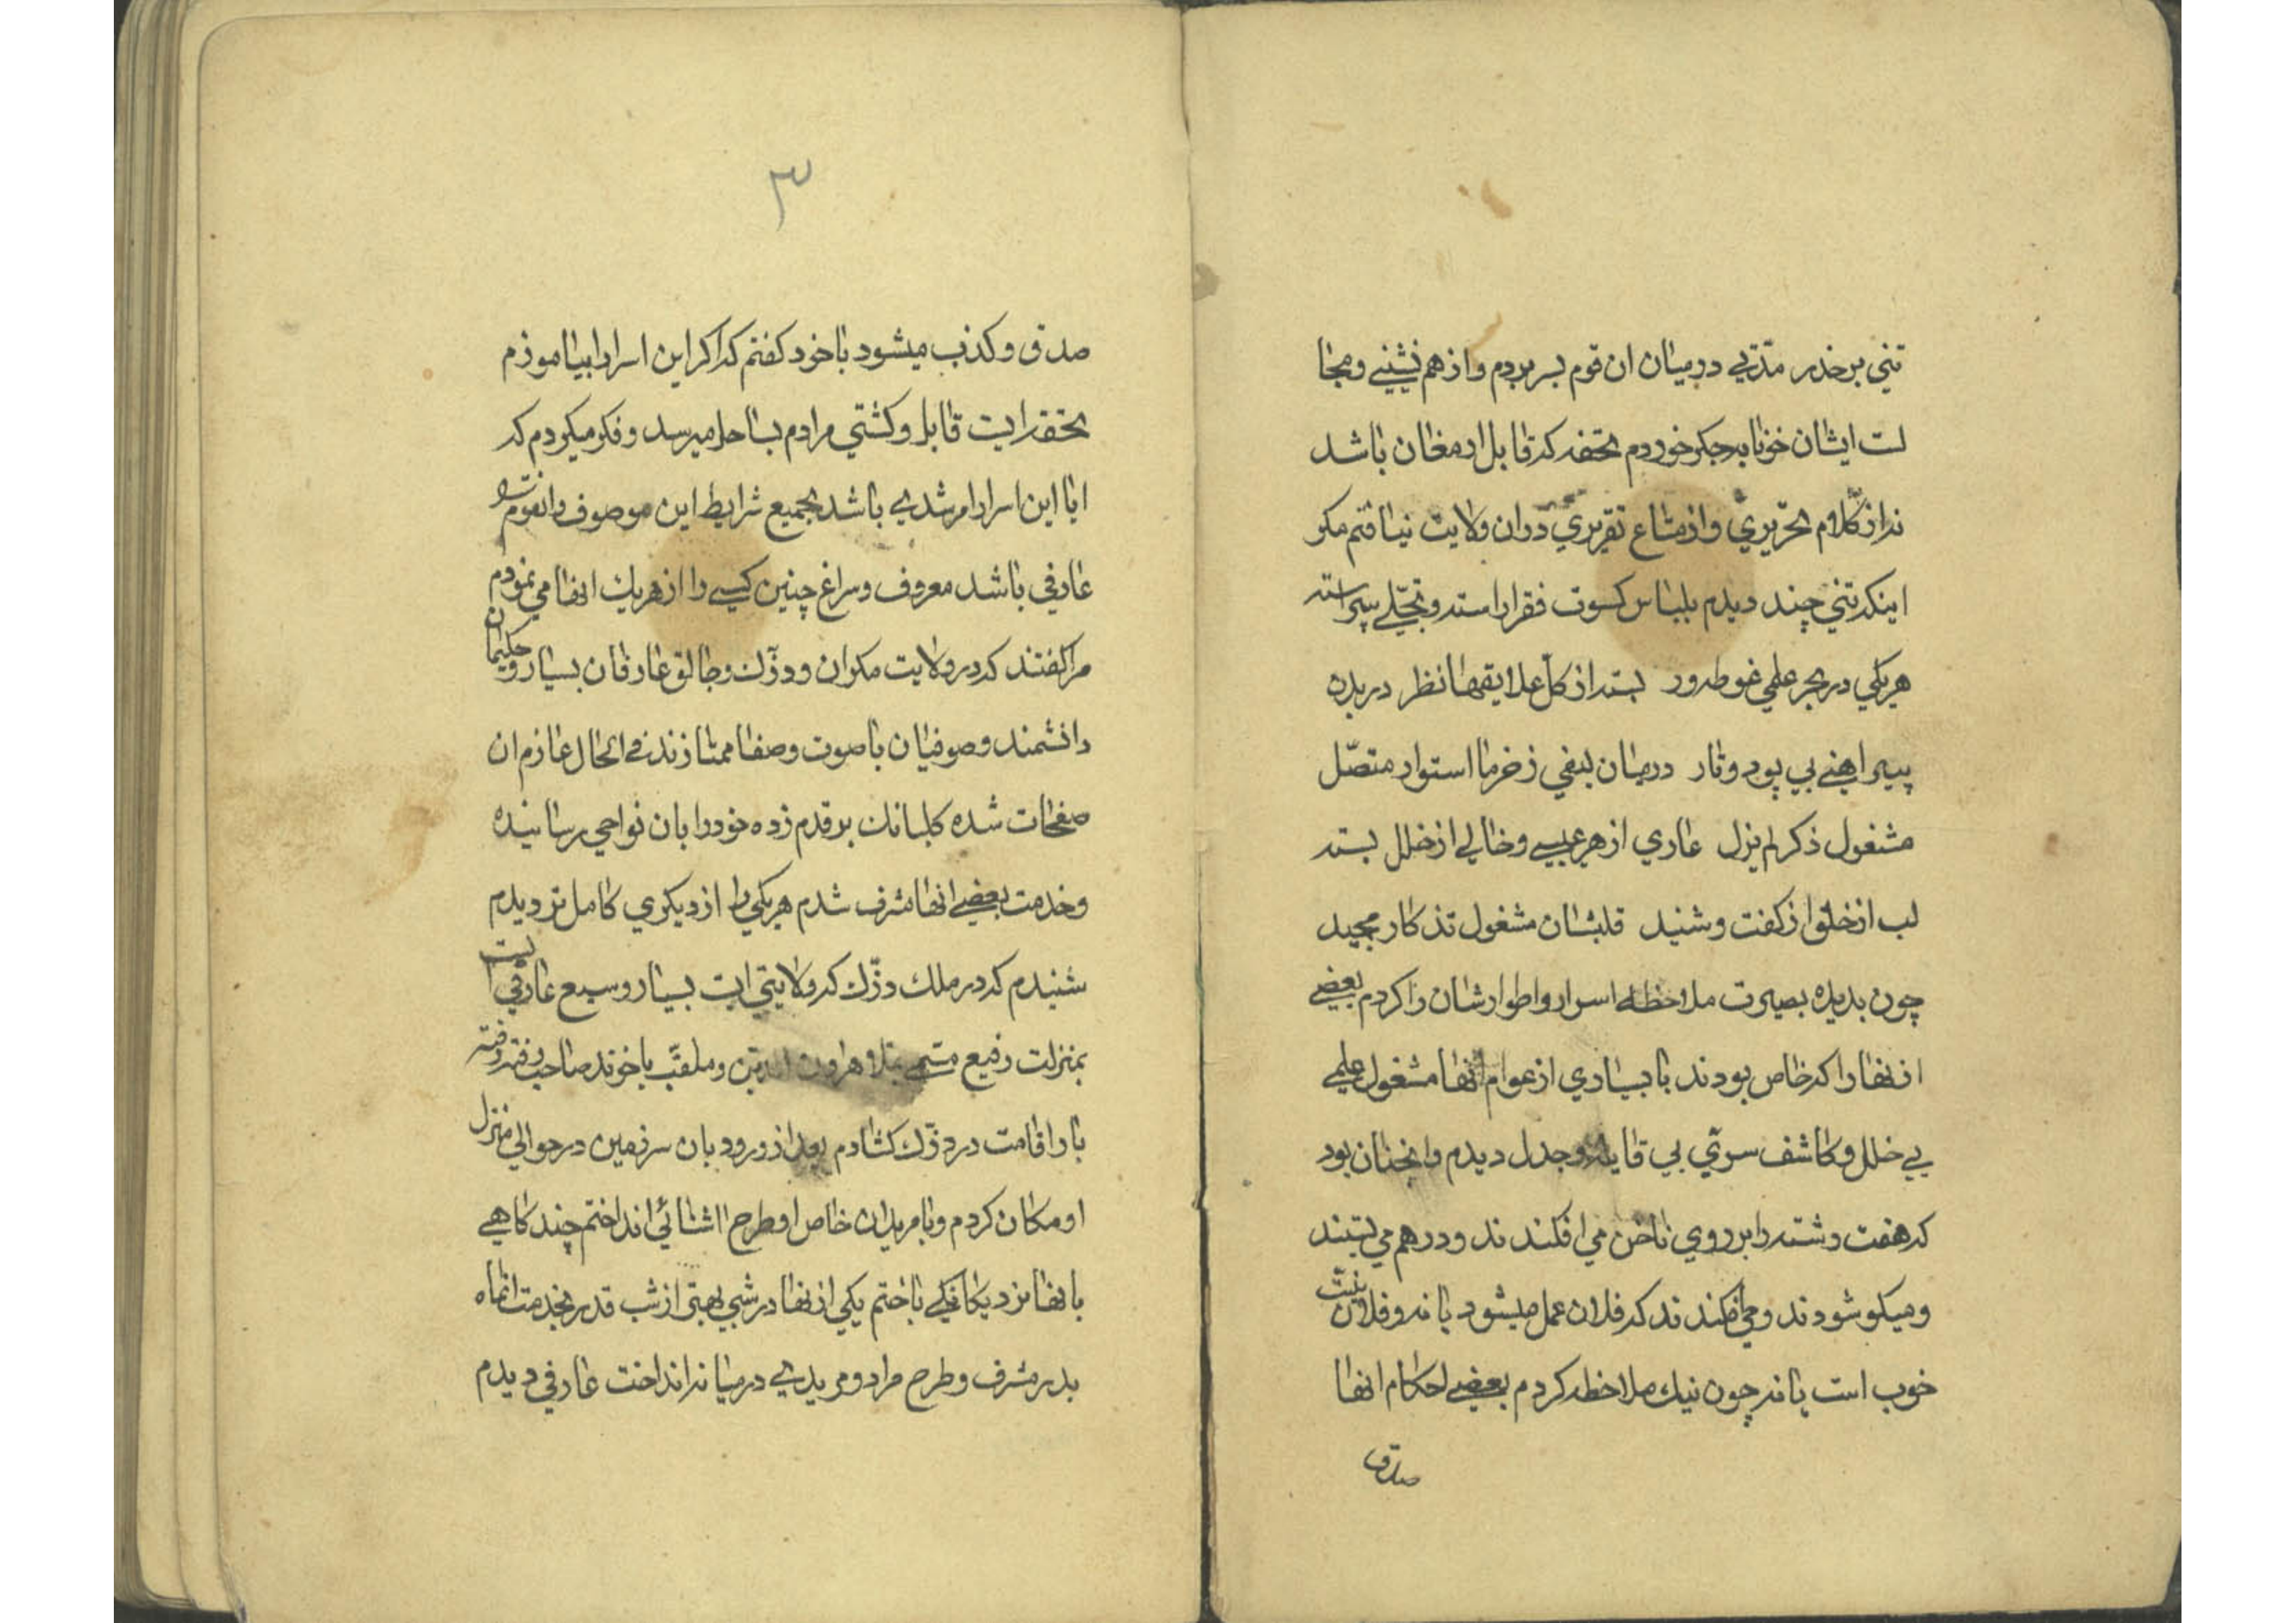 تني بر خذر مدتي درميان ان قوم بسر بردم و از هم نشيني و مجا
لست ايشان خونابه جكر خوردم تحفه كه قابل ارمغان باشد
نه از كلام تحريري و از متاع تقريري در ان ولايت نيافتم مكر
اينكه تني چند ديدم بلباس كسوت فقر اراسته و بتجلي پيراسته
هريكي در بحر علمي غوطه ور بسته از كل علايقها نظر در بدن
پيراهني بي پود و تار درميان ليفي ز خرما استوار متصل
مشغول ذكر لم يزل عاري از هر عيبي و خالي از خلل بسته
لب از خلق از كفت و شنيد قلبشان مشغول تذكار مجيد
چون بديده بصيرت ملاحظه اسرار و اطوارشان را كردم بعضي
از نها را كه خاص بودند با بسياري از عوام انها مشغول علمي
بي خلل و كاشف سري بي قايله و جدل ديدم و انچنان بود
كه هفت رشته را بر روي ناخن مي افكندند و در هم مي بستند
و ميكوشودند و مي كفتند كه فلان عمل ميشود يا نه و فلان نيت
خوب است يا نه چون نيك ملاحظه كردم بعضي احكام انها
صدق
٣
صدق و كذب ميشود با خود كفتم كه اكر اين اسرار را بياموزم
تحفه ايست قابل و كشتي مرادم بساحل ميرسد و فكر ميكردم كه
ايا اين اسرار را مرشدي باشد بجميع شرايط اين موصوف و انقوم را
عارفي باشد معروف و سراغ چنين كسي را از هريك انها مي نمودم
مرا كفتند كه در ولايت مكران و دزك و جالق عارفان بسيار و حكيمان
دانشمند و صوفيان با صوت و صفا ممتازند في الحال عازم ان
صفحات شده كلبانك بر قدم زده خود را بان نواحي رسانيده
و خدمت بعضي انها مشرف شدم هريكي را از ديكري كامل تر ديدم
شنيدم كه در ملك دزك كه ولايتي ايست بسيار وسيع عارفي است
بمنزلت رفيع مسمي بملا هرون الدين و ملقب باخوند صاحب رفته رفته
بار اقامت در دزك كشادم بعد از ورود بان سرزمين در حوالي منزل
او مكان كردم و با مريدان خاص او طرح اشنائي انداختم چند كاهي
با انها نرد يكانكي باختم يكي از نها در شبي بهتر از شب قدر بخدمت انماه
بدر مشرف و طرح مراد و مريدي درميانه انداخت عارفي ديدم